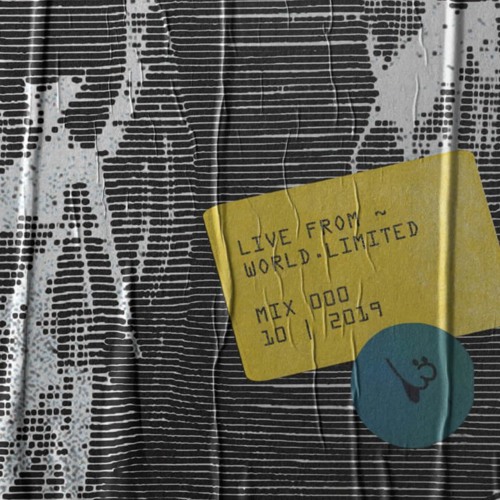 LIVE FROM ~
WORLD.LIMITED
MIX 000
10 | 2019